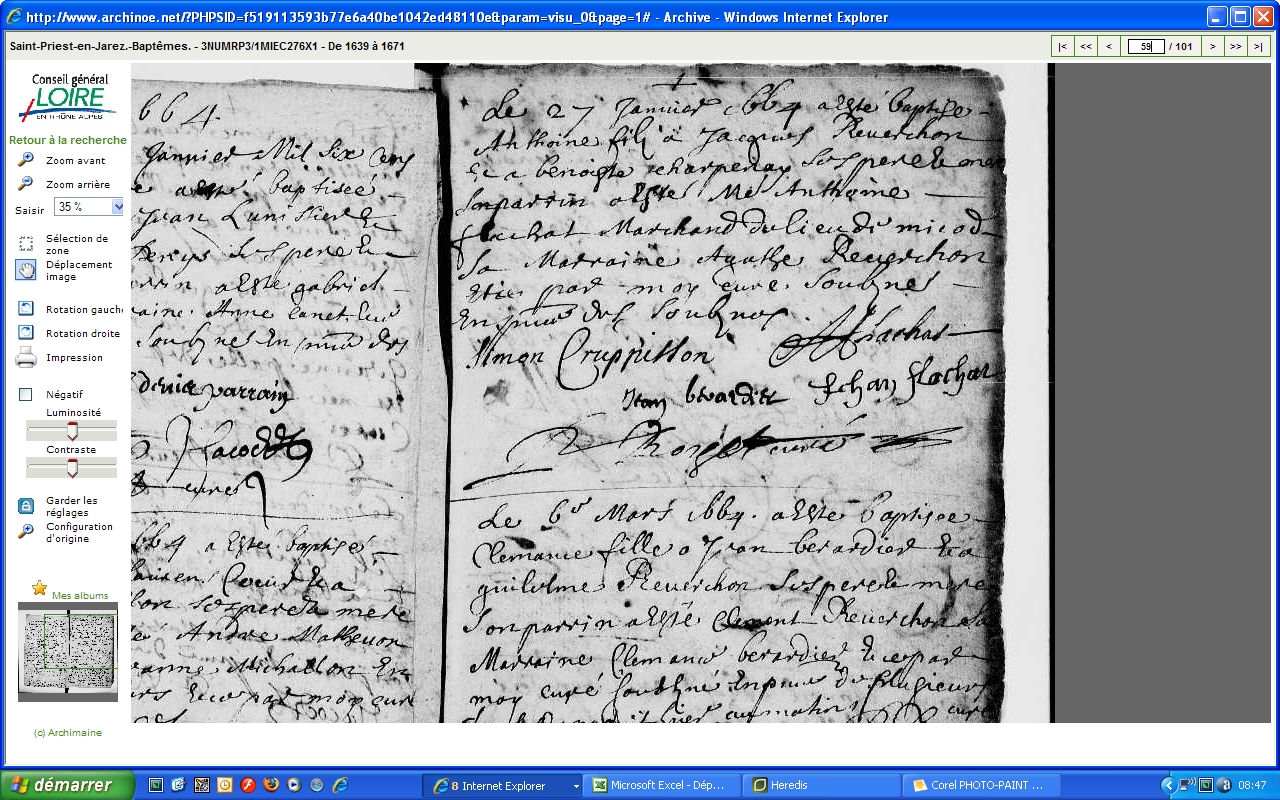 http://www.archinoe.net/?PHPSID=f519113593b77e6a40be1042ed48110e&param=visu_0&page=1# - Archive - Windows Internet Explorer
Saint-Priest-en-Jarez.-Baptêmes. - 3NUMRP3/1MIEC276X1 - De 1639 à 1671
|< << < 59 / 101 > >> >|
Conseil général
LOIRE
EN RHÔNE ALPES
Retour à la recherche
Zoom avant
Zoom arrière
Saisir 35 %
Sélection de
zone
Déplacement
image
Rotation gauche
Rotation droite
Impression
Négatif
Luminosité
Contraste
Garder les
réglages
Configuration
d'origine
Mes albums
(c) Archimaine
664.
Janvier Mil six cens
a esté baptiseé
Jean
ses pere &
a esté gabriel
Anne
Soubznés En
parrain
curé
664 a esté baptisé
& a
ses pere & mere
André Matheuon
Michallon En
par moy curé
Le 27 Janvier 1664 a esté baptisé
Anthoine filz à Jacques Reuerchon
& a benoiste charpenay ses pere & mere
Son parrin a esté Me Anthoine
flachat Marchand du lieu de micod
Sa Marraine Agathe Reuerchon
par moy curé Soubznes
En des Soubznes
Simon Cruppisson Flachat
Jean berardier Jehan flachat
curé
Le 6e Mars 1664. a Esté baptisee
Clemance fille a Jean berardier & a
guilelme Reuerchon ses pere & mere
Son parrin a esté Clement Reuerchon sa
Marraine Clemance berardier & ce par
moy curé Soubzné En de plusieurs
démarrer
8 Internet Explorer
Microsoft Excel - Dép...
Heredis
Corel PHOTO-PAINT ...
08:47